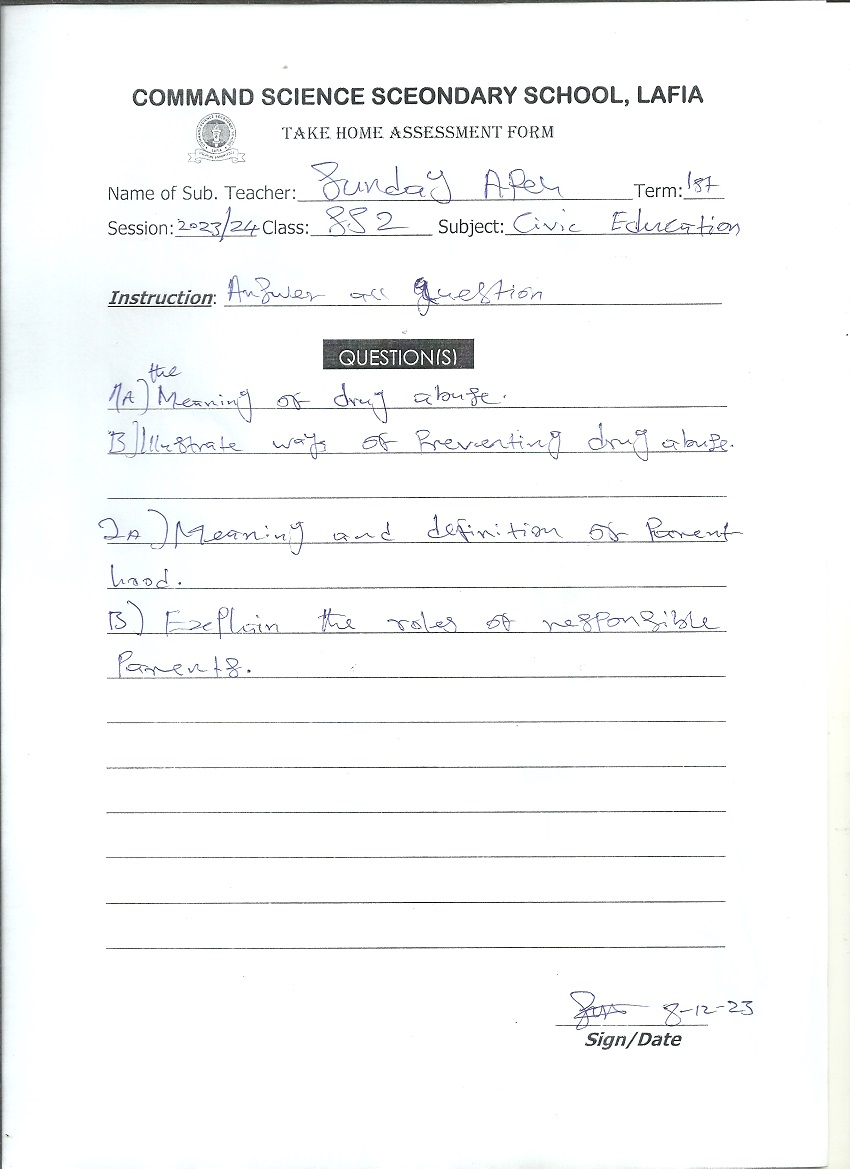 COMMAND SCIENCE SCEONDARY SCHOOL, LAFIA
TAKE HOME ASSESSMENT FORM
Name of Sub. Teacher: Sunday Apeh Term: 1st
Session: 2023/24 Class: SS2 Subject: Civic Education
Instruction: Answer all question
QUESTION(S)
the
1A) Meaning of drug abuse.
B) Illustrate ways of Preventing drug abuse.
2A) Meaning and definition of Parent
hood.
B) Explain the roles of responsible
Parents.
8-12-23
Sign/Date